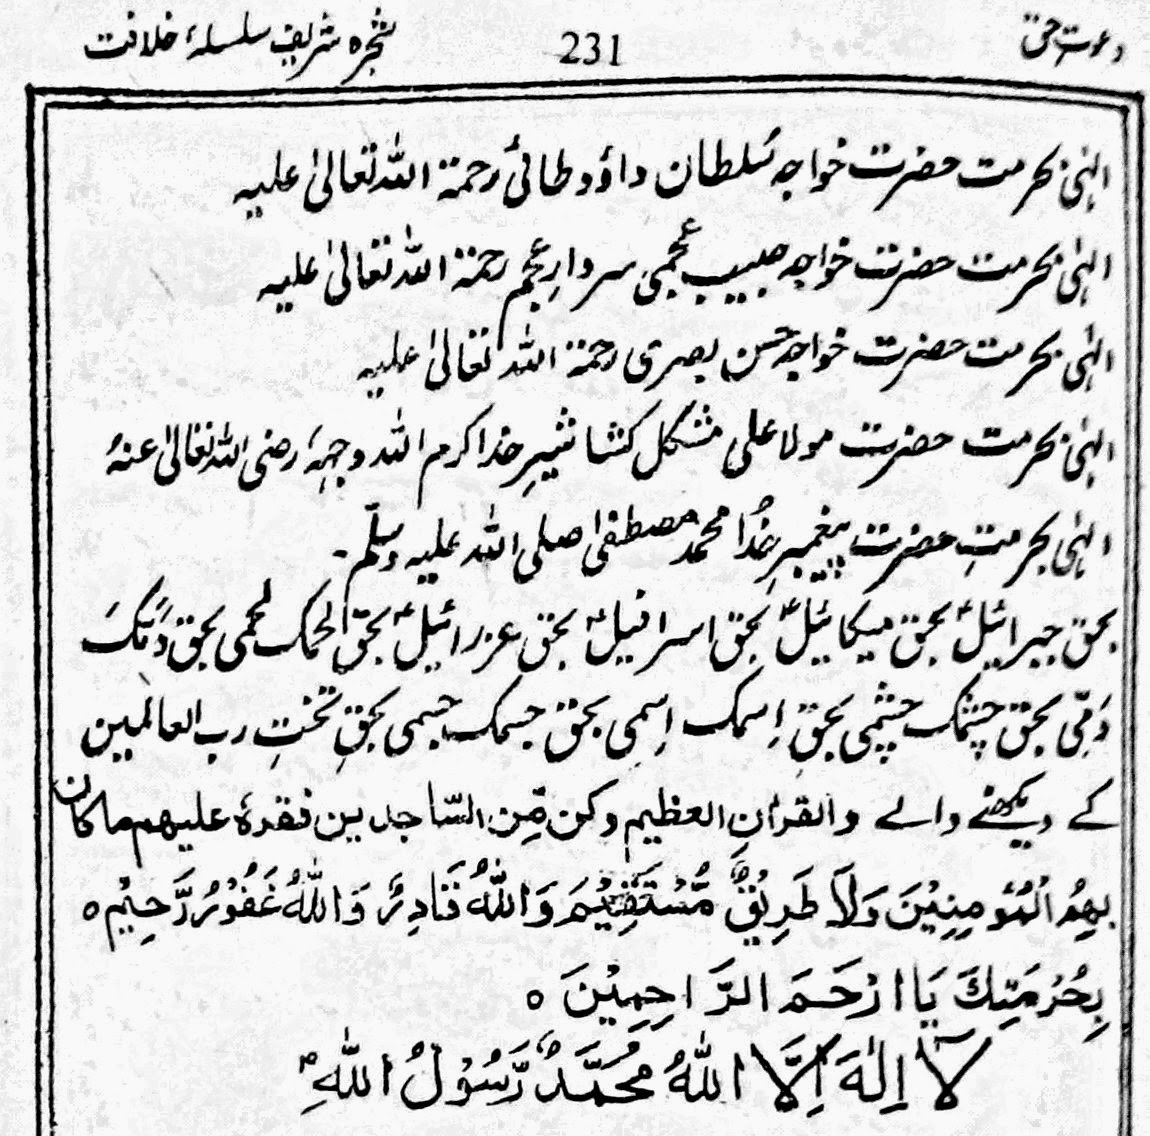 دعوت حق 231 شجرہ شریف سلسلۂ خلافت
الہٰی بحرمت حضرت خواجہ سُلطان داؤد طائی رحمۃ اللہ تعالیٰ علیہ
الہٰی بحرمت حضرت خواجہ حبیب عجمی سردارِ عجم رحمۃ اللہ تعالیٰ علیہ
الہٰی بحرمت حضرت خواجہ حسن بصری رحمۃ اللہ تعالیٰ علیہ
الہٰی بحرمت حضرت مولا علی مشکل کشا شیرِ خدا کرم اللہ وجہہٗ رضی اللہ تعالیٰ عنہٗ
الہٰی بحرمتِ حضرت پیغمبرِ خُدا محمد مصطفیٰ صلی اللہ علیہ وسلّم۔
بحق جبرائیلؑ بحق میکائیلؑ بحق اسرافیلؑ بحق عزرائیلؑ بحق لحمک لحمی بحق دَمُکَ
دَمِّی بحق چشمک چشمی بحقِ اِسمک اِسمِی بحق جسمک جسمی بحقِ تختِ رب العالمین
کے دیکھنے والے والقراٰنِ العظیم وکن مِّن السّاجدین فقدہٗ علیھم ماکان
بِھِمُ الْمُؤمِنِیْنَ وَلَا طَرِیْقٌ مُّسْتَقِیْمَ وَاللّٰہُ قَادِرٌ وَاللّٰہُ غَفُوْرٌ رَّحِیْمٌ ہ
بِحُرْمَتِکَ یَا اَرْحَمَ الرَّاحِمِیْنَ ہ
لَآ اِلٰہَ اِلَّا اللّٰہُ مُحَمَّدٌ رَّسُوْلُ اللّٰہِ